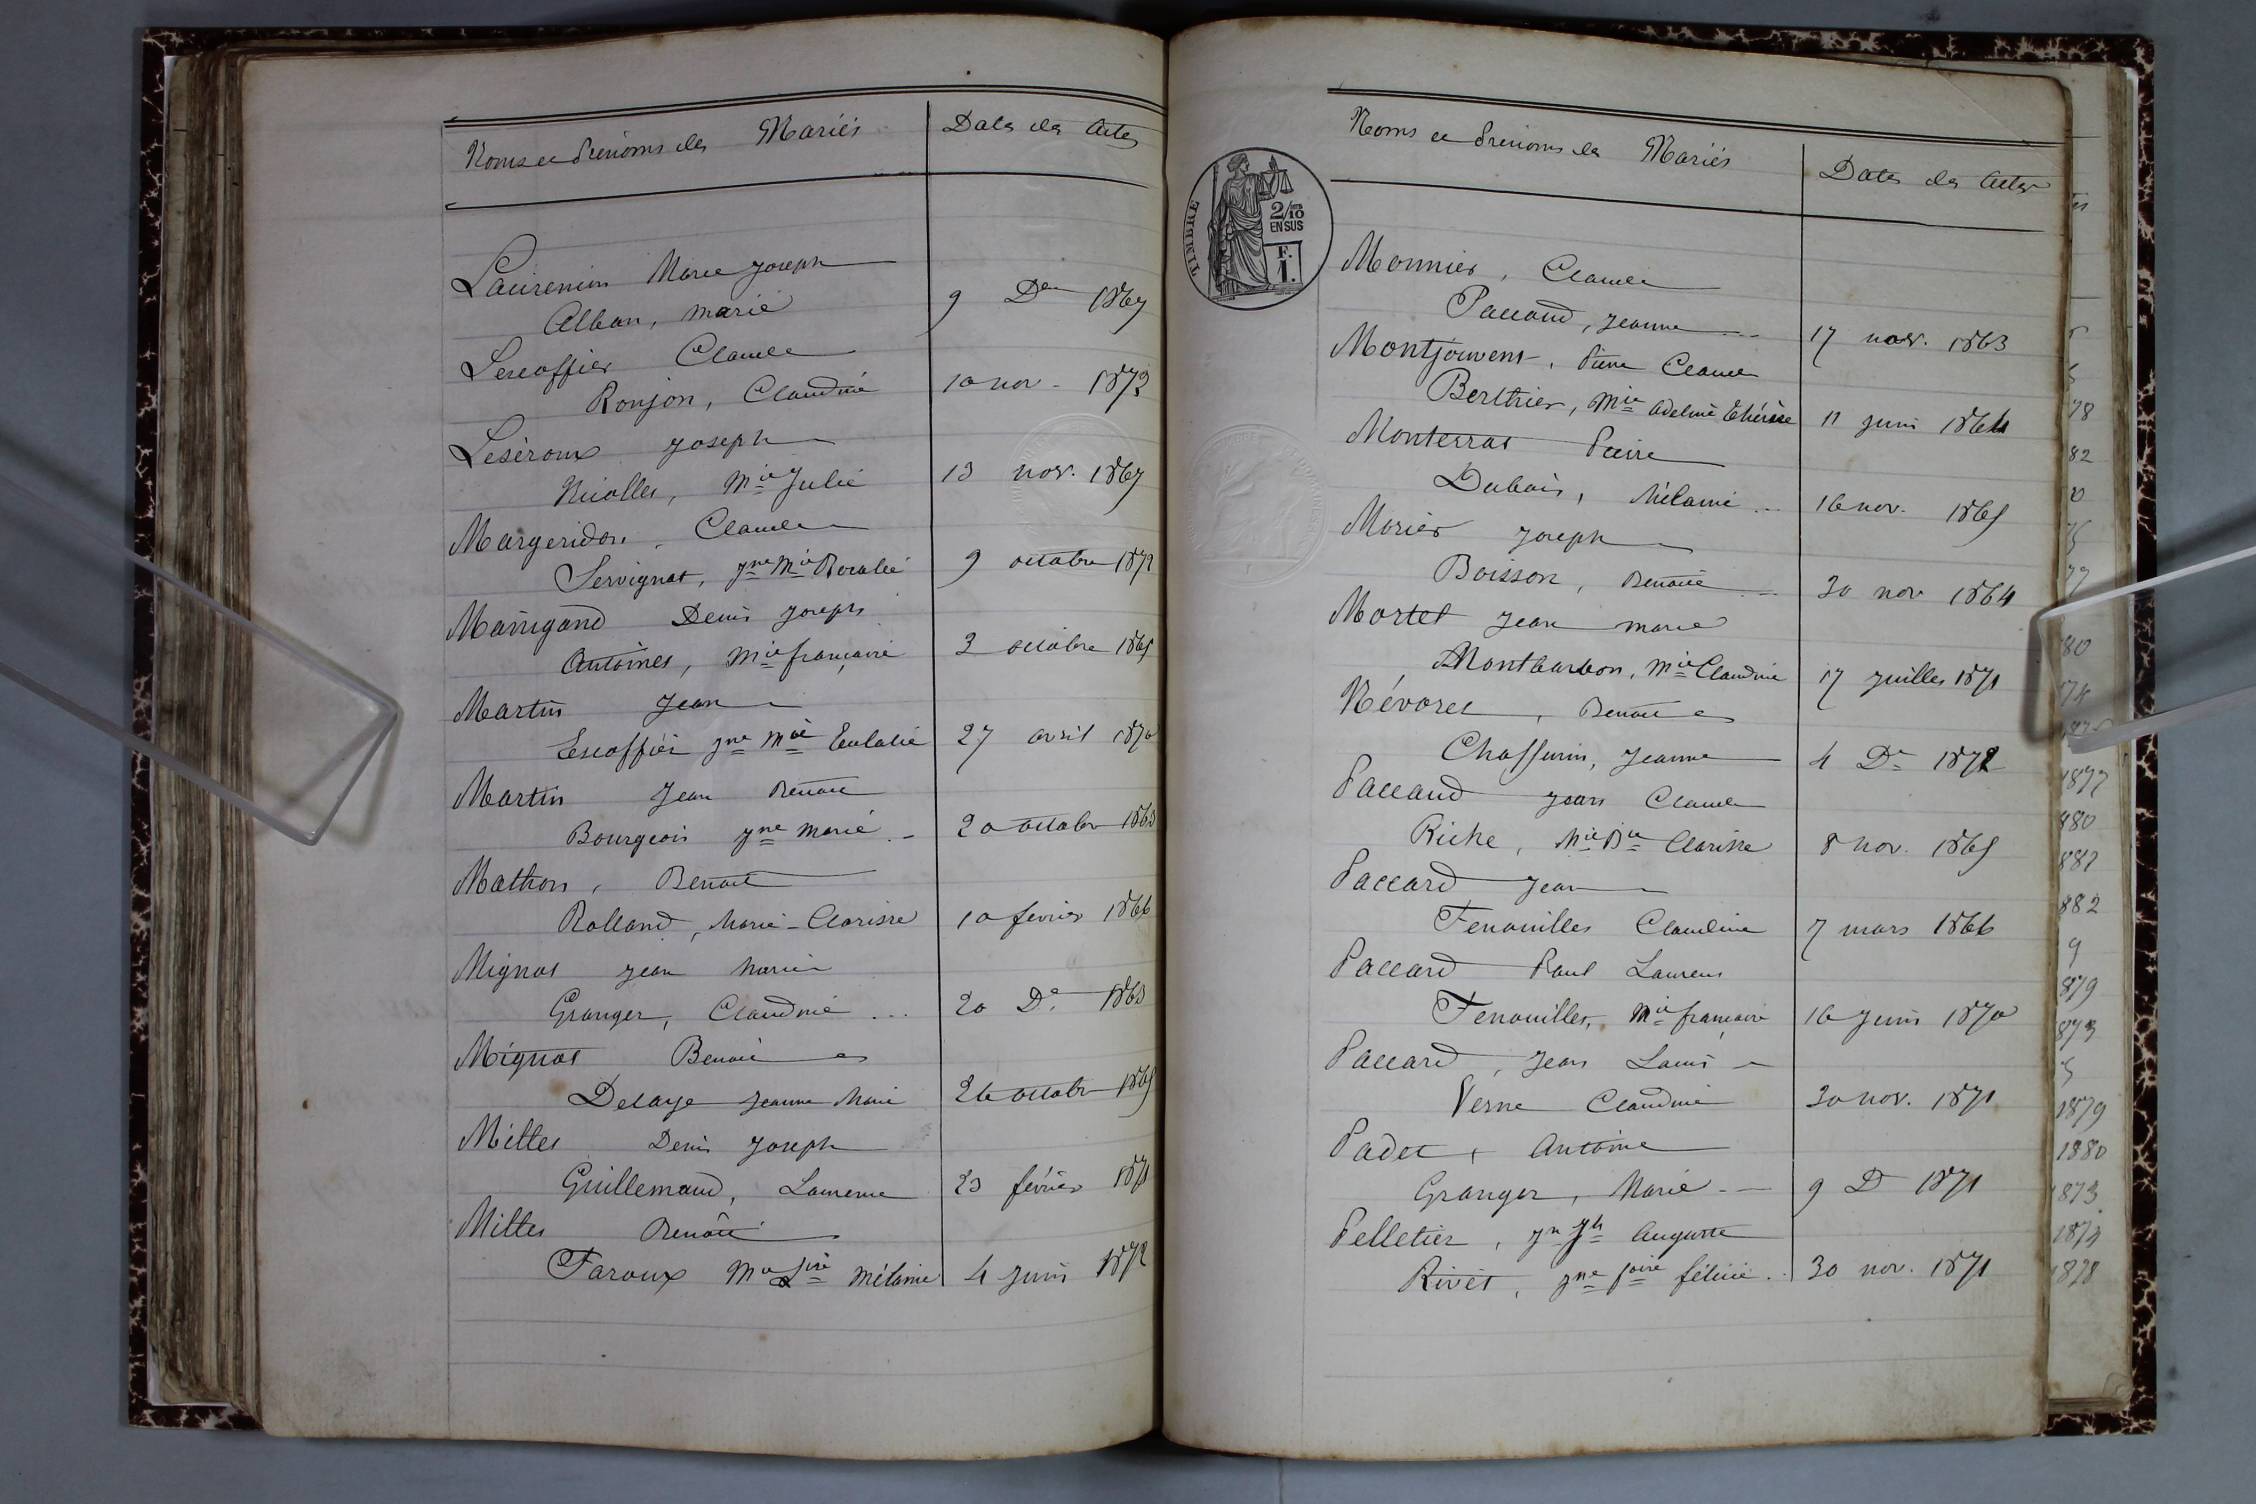 Noms et Prénoms des Mariés
Dates des Actes
Laurencin Marie Joseph
Alban, Marie
9 Dre 1867
Lescoffier Claude
Ronjon, Claudine
10 nov. 1873
Leséroux Joseph
Nicollet, Mie Julie
13 nov. 1867
Margeridon, Claude
Servignat, Jne Mie Rosalie
9 octobre 1872
Maringand Denis Joseph
Antoinet, Mie françoise
3 octobre 1865
Martin Jean
Escoffier Jne Mie Eulalie
27 avril 1870
Martin Jean Benoit
Bourgeois Jne Marie
20 octobre 1863
Mathon, Benoit
Rolland, Marie-Clarisse
10 fevrier 1866
Mignot Jean Marie
Granger, Claudine
20 De 1863
Mignot Benoit
Delaye Jeanne Marie
26 octobre 1865
Millet Denis Joseph
Guillemaud, Laurence
23 février 1871
Millet Benoît
Faroux Mie Mélanie
4 juin 1872
Noms et Prénoms des Mariés
Dates des Actes
TIMBRE
2/10
EN SUS
F.
1.
Monnier, Claude
Paccaud, Jeanne
17 nov. 1863
Montjouvent, Pierre Claude
Berthier, Mie Adeline Thérèse
11 juin 1864
Monterrat Pierre
Dubois, Mélanie
16 nov. 1865
Morier Joseph
Boisson, Benoite
30 nov 1864
Mortel Jean Marie
Montbarbon, Mie Claudine
17 juillet 1871
Névoret, Benoit
Chaffurin, Jeanne
4 De 1872
Paccaud Jean Claude
Riche, Mie Bte Clarisse
8 nov. 1865
Paccard Jean
Fenouillet Claudine
7 mars 1866
Paccard Paul Laurent
Fenouillet, Mie françoise
16 juin 1870
Paccard, Jean Louis
Verne Claudine
30 nov. 1871
Padet, Antoine
Granger, Marie
9 D 1871
Pelletier, Jn Jh Auguste
Rivet, Jne félicie
30 nov. 1871
78
82
77
80
1877
880
882
879
1879
1880
1873
1874
1878